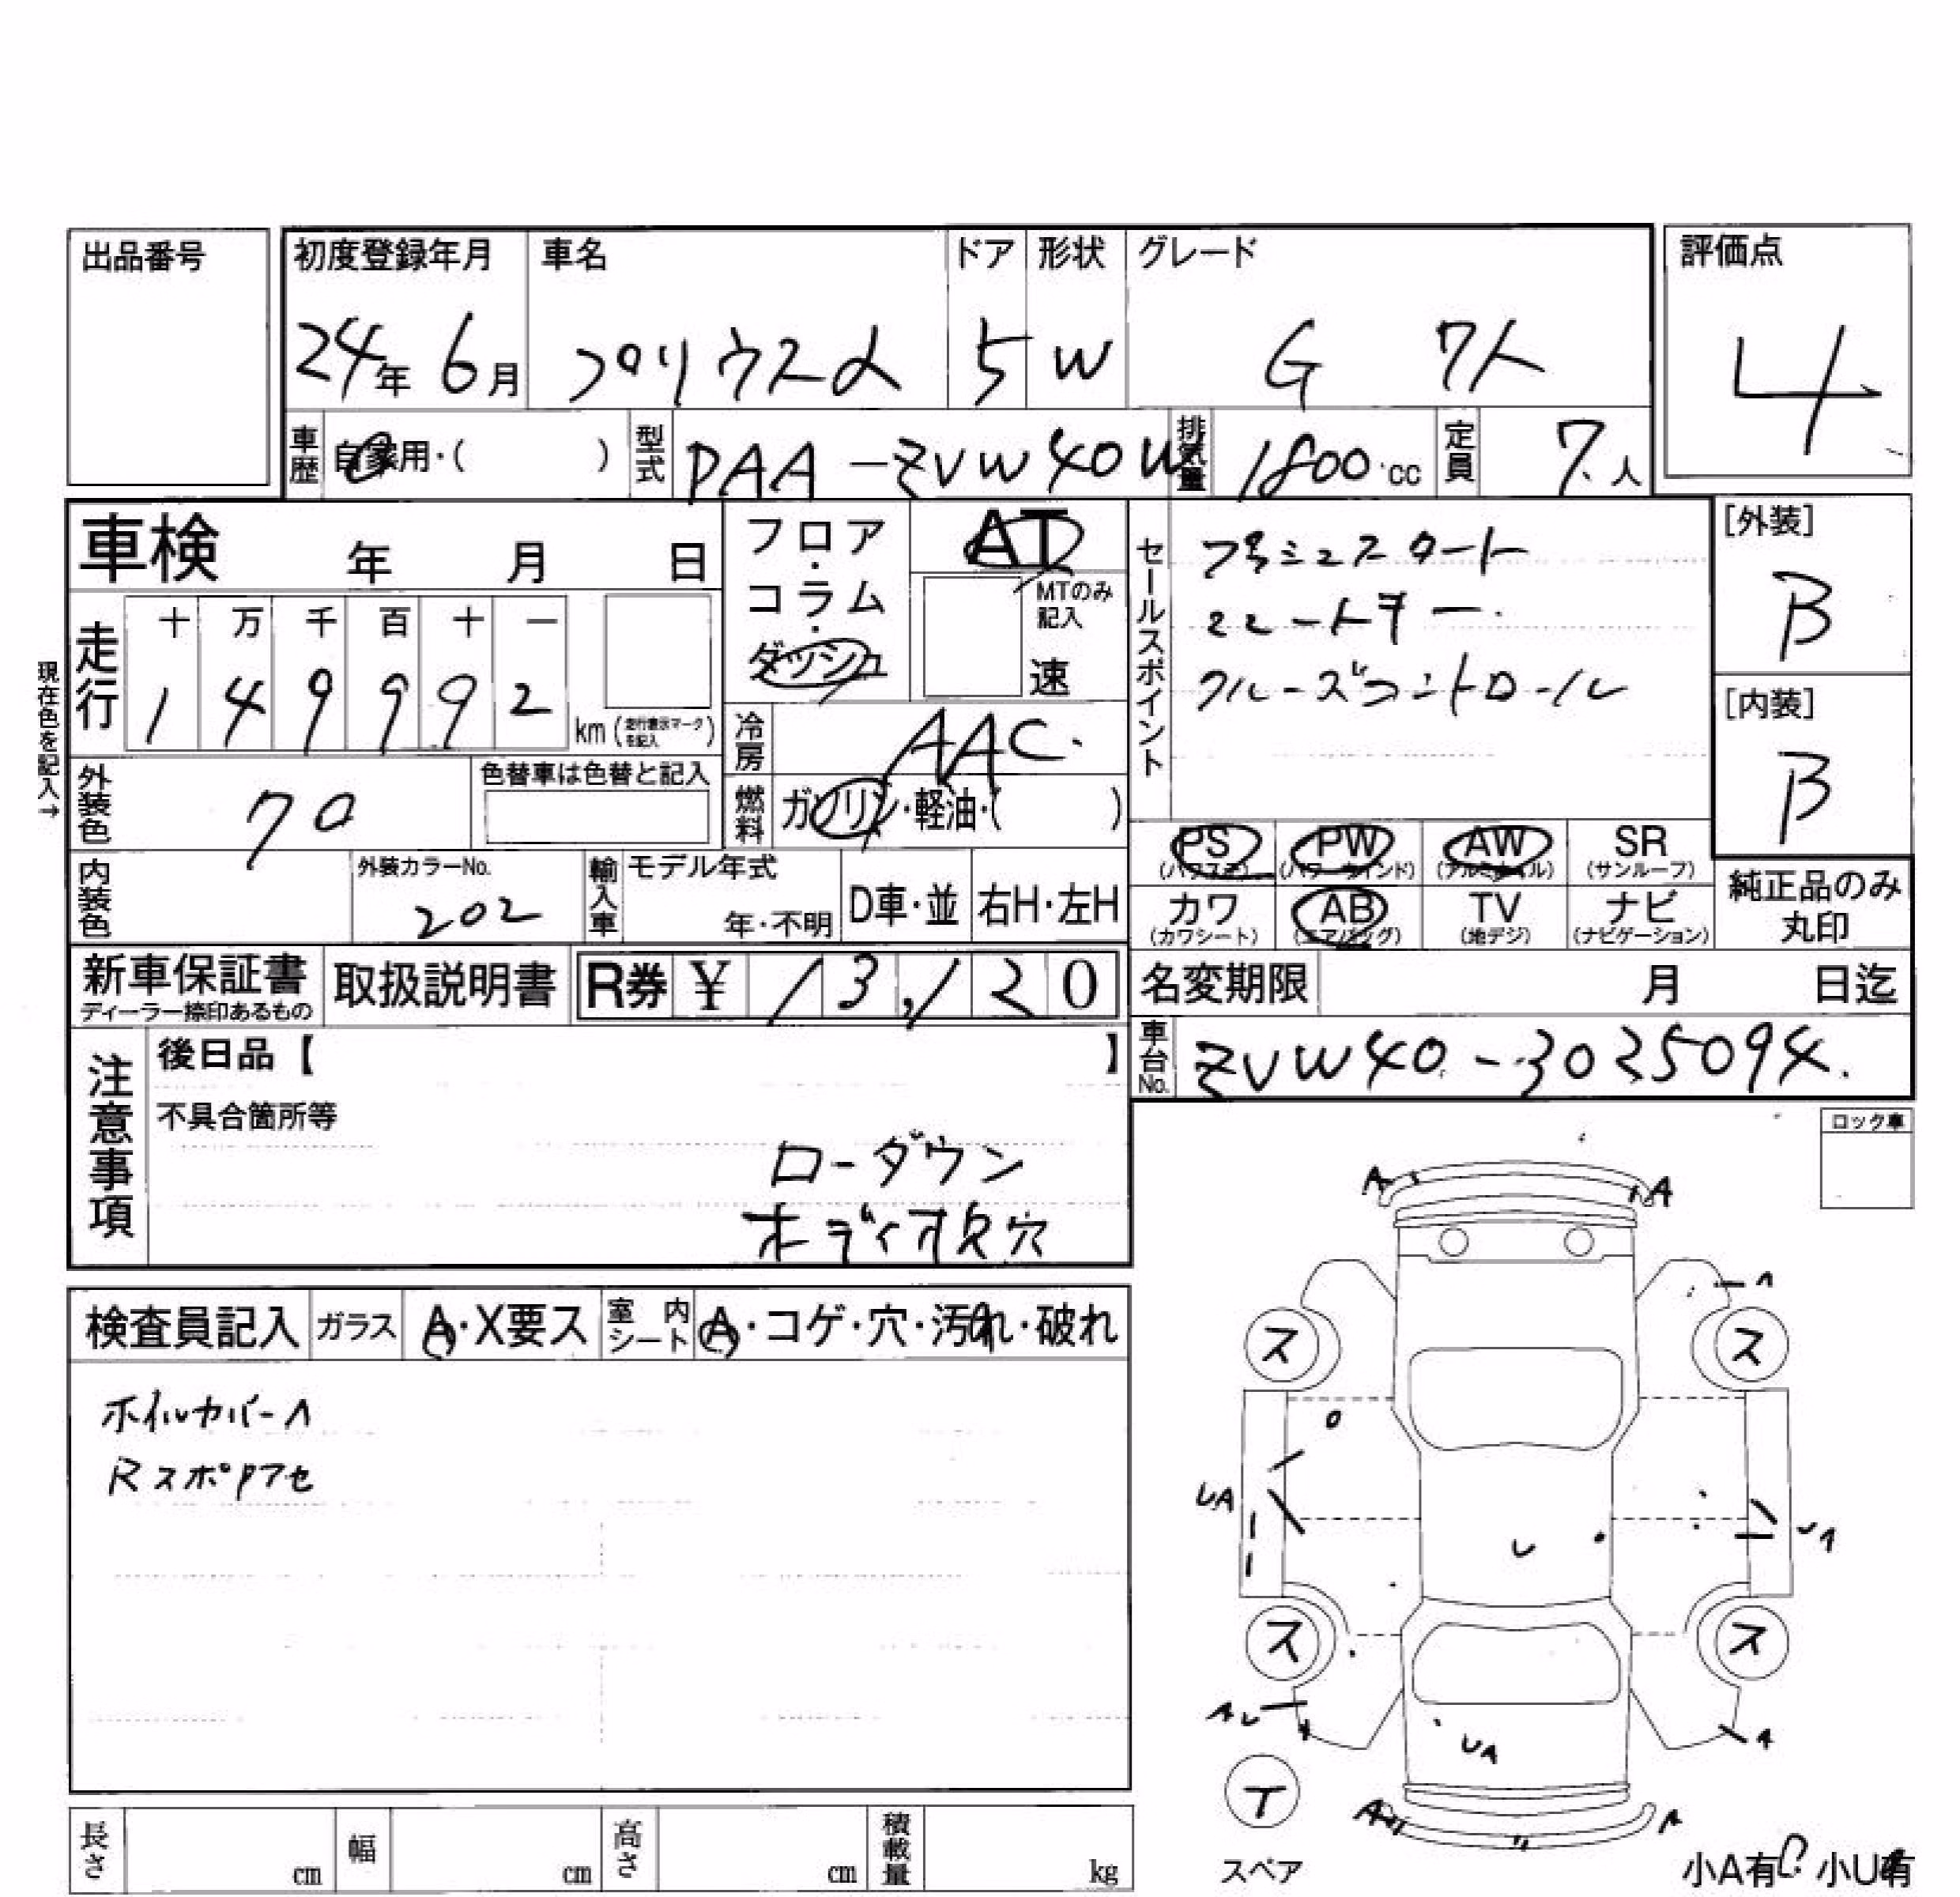 出品番号
初度登録年月 車名 ドア 形状 グレード 評価点
24年 6月 プリウスα 5 W G 7人 4
車歴 自家用・( ) 型式 DAA-ZVW40W 排気量 1800cc 定員 7人
車検 年 月 日
フロア・コラム・ダッシュ
AT
MTのみ記入 速
セールスポイント
プッシュスタート
スマートキー
クルーズコントロール
[外装]
B
[内装]
B
現在色を記入→
走行 十 万 千 百 十 一
1 4 9 9 9 2 km(走行表示マークを記入)
冷房 AAC
燃料 ガソリン・軽油・( )
外装色 クロ 色替車は色替と記入
内装色 外装カラーNo. 202
輸入車 モデル年式 年・不明 D車・並 右H・左H
PS (パワステ) PW (パワーウインド) AW (アルミホイル) SR (サンルーフ)
カワ (カワシート) AB (エアバッグ) TV (地デジ) ナビ (ナビゲーション)
純正品のみ丸印
新車保証書 ディーラー捺印あるもの 取扱説明書 R券 ¥ 13,120
名変期限 月 日迄
車台No. ZVW40-3035094
注意事項
後日品【 】
不具合箇所等
ローダウン
ボディ小穴
ロック車
検査員記入 ガラス A・X要ス 室内シート A・コゲ・穴・汚れ・破れ
ホイルカバーA
RスポPアセ
A A
A
ス ス
UA UA
U
ス ス
AU
UA A
T
スペア
A A
小A有 小U有
長さ cm 幅 cm 高さ cm 積載量 kg